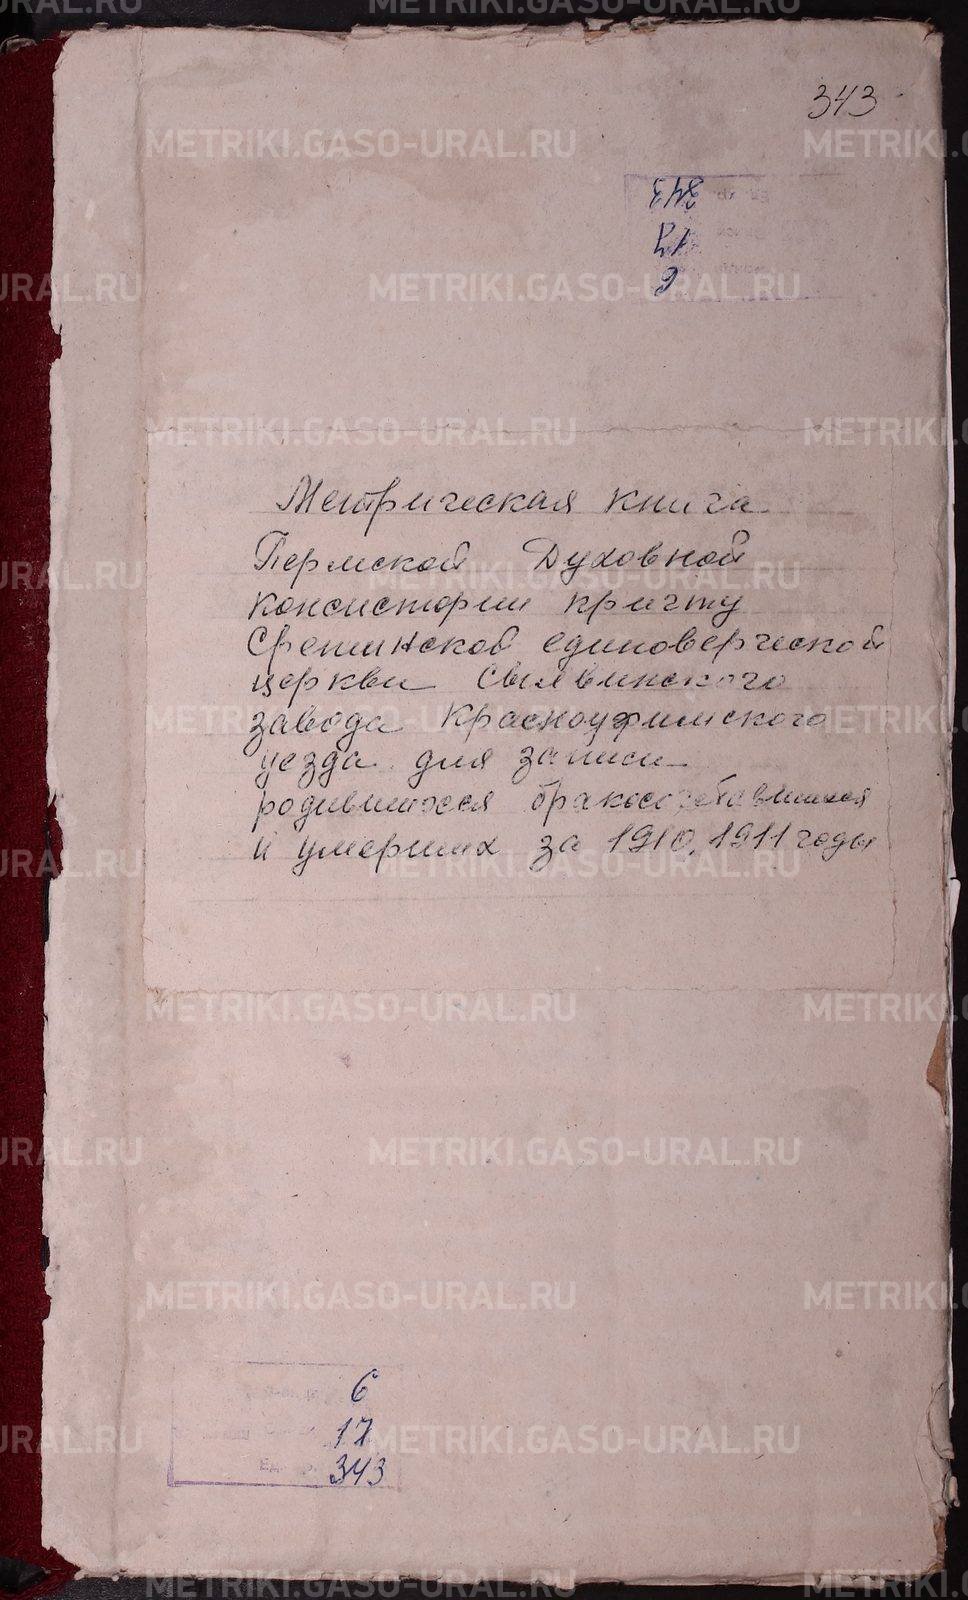 343
Метрическая книга
Пермской Духовной
консистории причту
Сретинской единоверческой
церкви Сылвинского
завода Красноуфимского
уезда для записи
родившихся бракосочетавшихся
и умерших за 1910, 1911 годы
6
17
343
343
17
6
METRIKI.GASO-URAL.RU